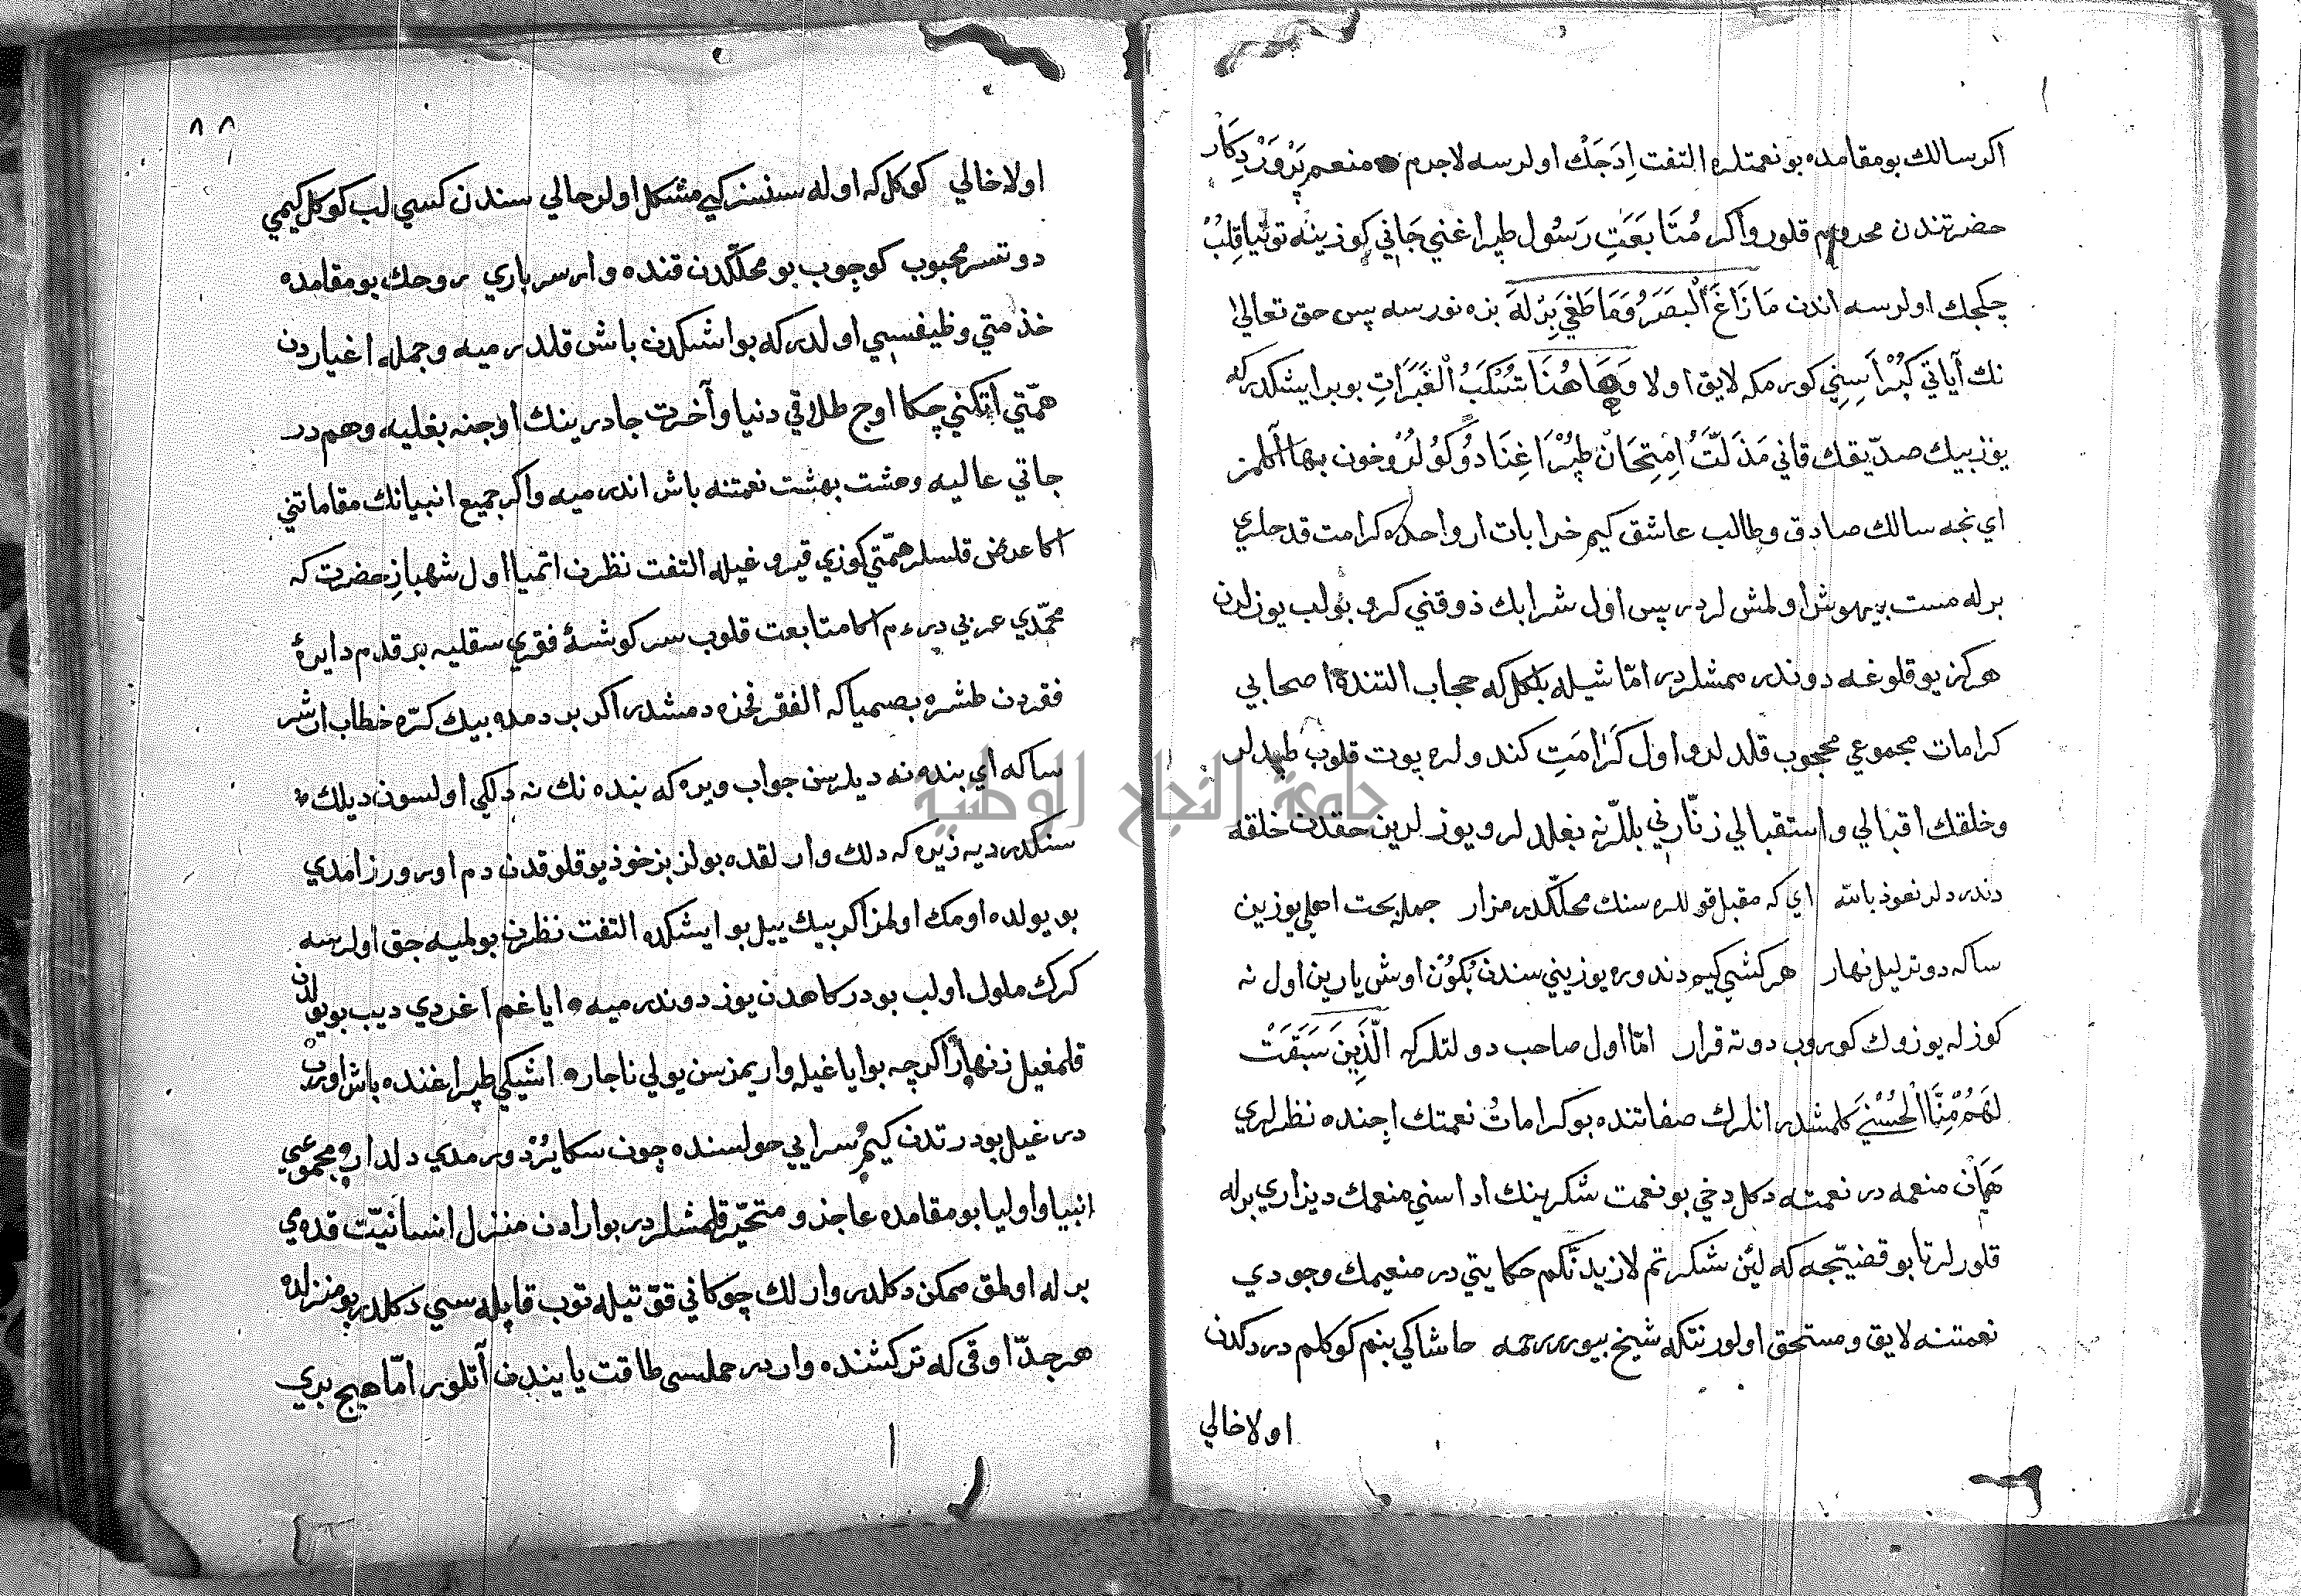 اكر سالك بو مقامده بو نعمتلره التفت اِدَجَكْ اولرسه لاجرم منعم پَرْوَرْدِكَار
حضرتندن محروم قلور واكر مُتَابَعَتِ رَسُول طپراغني جَانِي كوزينه توتيا قِلِبْ
چكجك اولرسه اندن مَا زَاغَ الْبَصَرُ وَمَا طَغَي بِرْلَهَ بزه نورسه پس حق تعالي
نك آياتي كُبْرَاسِنِي كورمكه لايق اولا وَهَاهُنَا تُسْكَبُ الْعَبَرَاتِ بو بر ايشكدر كه
يوز بيك صدّيقك قاني مَذَلَّتُ اِمْتِحَانْ طپْرَاغِنَا دُوكُولُرْ و خون بها آلمز
اي نجه سالك صادق وطالب عاشق كيم خرابات ارواحده كرامت قدحلري
برله مست بيهوش اولمش لردر پس اول شرابك ذوقني كرو بولب يوزلرن
هركز يوقلوغه دوندرممشلردر امّا شيله بلكل كه حجاب التنده اصحابي
كرامات مجموعي محجوب قلدلر و اول كَرَامَتِ كندولره پوت قلوب طپدلر
وخلقك اقبالي واستقبالي زنّارني بللرّنه بغلدلر و يوزلرين حقدن خلقه
دندردلر نعوذ بالله اي كه مقبل قوللره سنك محلّكدر مزار جمله بحت اهلي يوزين
ساكه دوتر ليل نهار هر كشي كيم دندوره يوزيني سندن بُكُون اوش يارين اول نه
كوزله يوزوك كوروب دوته قرار امّا اول صاحب دولتلر كه الَّذِينَ سَبَقَتْ
لَهُمْ مِنَّا الْحُسْنَي كلمشدر انلرك صفاتنده بو كرامات نعمتك اچنده نظرلري
هَمَان منعمه در نعمته دكل دخي بو نعمت شكرينك اداسني منعمك ديزاري برله
قلورلر تا بو قضيّجه كه لئِن شكرتم لازيدنّكم حكايتي در منعمك وجودي
نعمتنه لايق ومستحق اولور نتكه شيخ بيورر رحمه حاشا كي بنم كوكلم دردكدن
اولا خالي
٨٨
اولا خالي كوكل كه اوله سنسز كي مشكل اولر حالي سندن كسي لب كوكل كيمي
دوتسر محبوب كوچوب بو محلّكدن قنده وارسر باري روحك بو مقامده
خذمتي وظيفسي اولدر كه بو اشكدن باش قلدرميه وجمله اغياردن
همّتي اتكني چكا اوج طلاقي دنيا وآخرت جادرينك اوجنه بغليه وهم در
جاتي عاليه وهشت بهشت نعمتنه باش اندرميه واكر جميع انبيانك مقاماتني
اكا عرض قلسلر همّتي كوزي قيروغيله التفت نظرن اتميا اول شهبازِ حضرت كه
محمّدي عربي در ءم اكا متابعت قلوب سر كوشهٔ فقري سقليه بر قدم دايرهٔ
فقردن طشره بصميا كه الفقر فخره دمشدر اكر بر دمده بيك كرّه خطاب ارشر
ساكه اي بنده نه ديلرسن جواب ويره كه بنده نك نه دلكي اولسون ديلك
سنكدر ديه زيره كه دلك وارلقده بولز بز خوذ يوقلوقدن دم اورورز امدي
بو يولده اومك اولمز اكر بيك ييل بو ايشكده التفت نظرن بولميه جق اولرسه
كرك ملول اولب بو دركاهدن يوز دوندرميه اياغم اغردي ديب بو يولدن
قلمغيل زنهار اكرچه بو اياغيله واريمزسن يولي ناجاره اشيكي طپراغنده باش اورن
در غيل بو درتدن كيم سرايي حولسنده چون سكا يُزْ دورمدي دلداب ومجموعي
انبيا واوليا بو مقامده عاجز ومتحيّر قلمشلردر بو ارادن منزل انسانيّت قدمي
برله اولمق ممكن دكلدر وارلك چوكاني قوّتيله توب قاپله سي دكلدر بو منزلده
هر جدّ اوقي كه تركشنده واردر حمليسي طاقت يايندن آتلور امّا هيچ بري